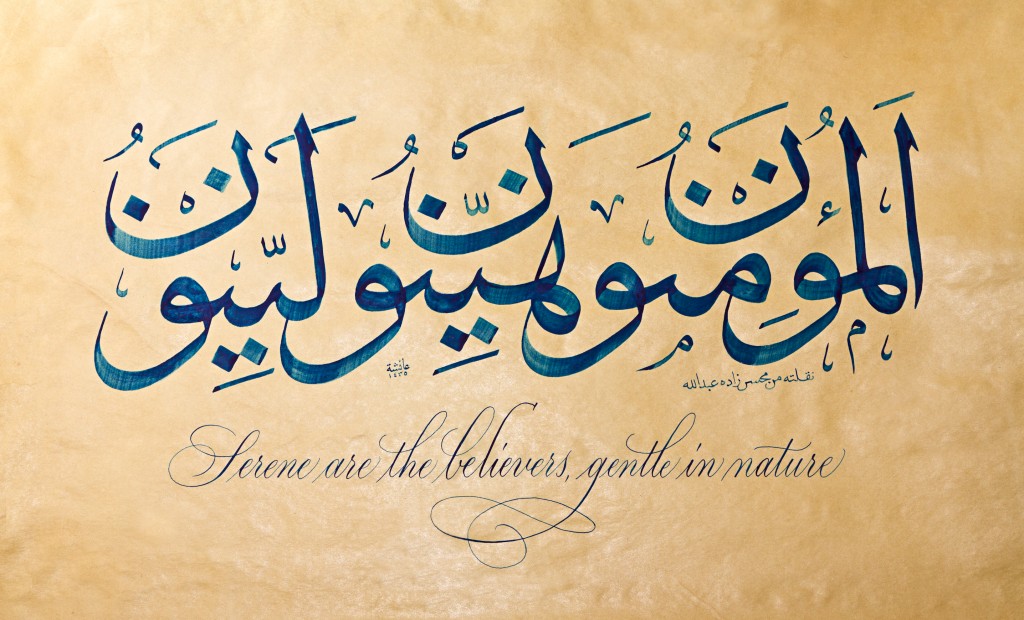 اَلْمُؤْمِنُونَ هَيِّنُونَ لَيِّنُونَ
نقلته من محسن زاده عبدالله
عائشة
١٤٣٥
Serene are the believers, gentle in nature